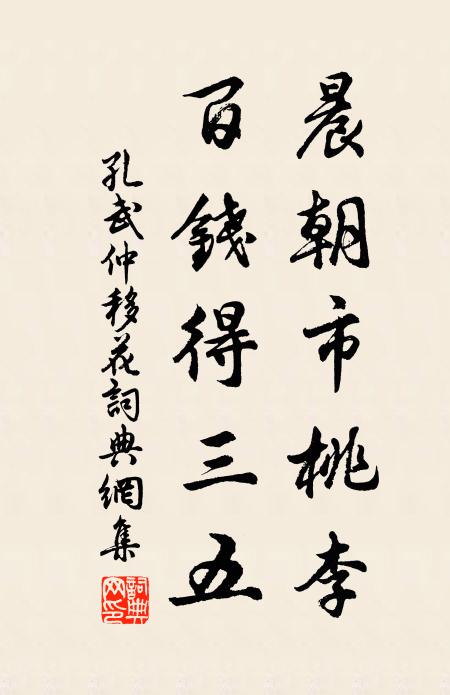 晨朝市桃李
百錢得三五
孔武仲移花詞典網集
詞典網印